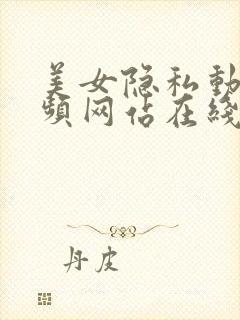 美女隐私動
頻网佔在綫
丹皮